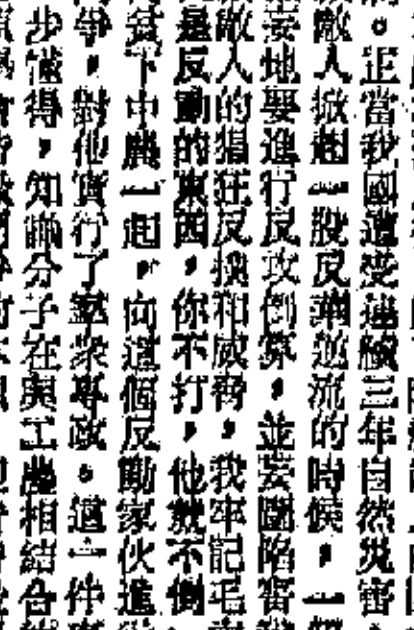 。正當我國遭受連續三年自然災害
敵人掀起一股反華逆流的時候，一
妄地要進行反攻倒算，並妄圖陷害
敵人的猖狂反撲和威脅，我牢記毛
是反動的東西，你不打，他就不倒
貧下中農一起，向這個反動家伙進
爭，對他實行了羣衆專政。這一件
步懂得，知識分子在與工農相結合